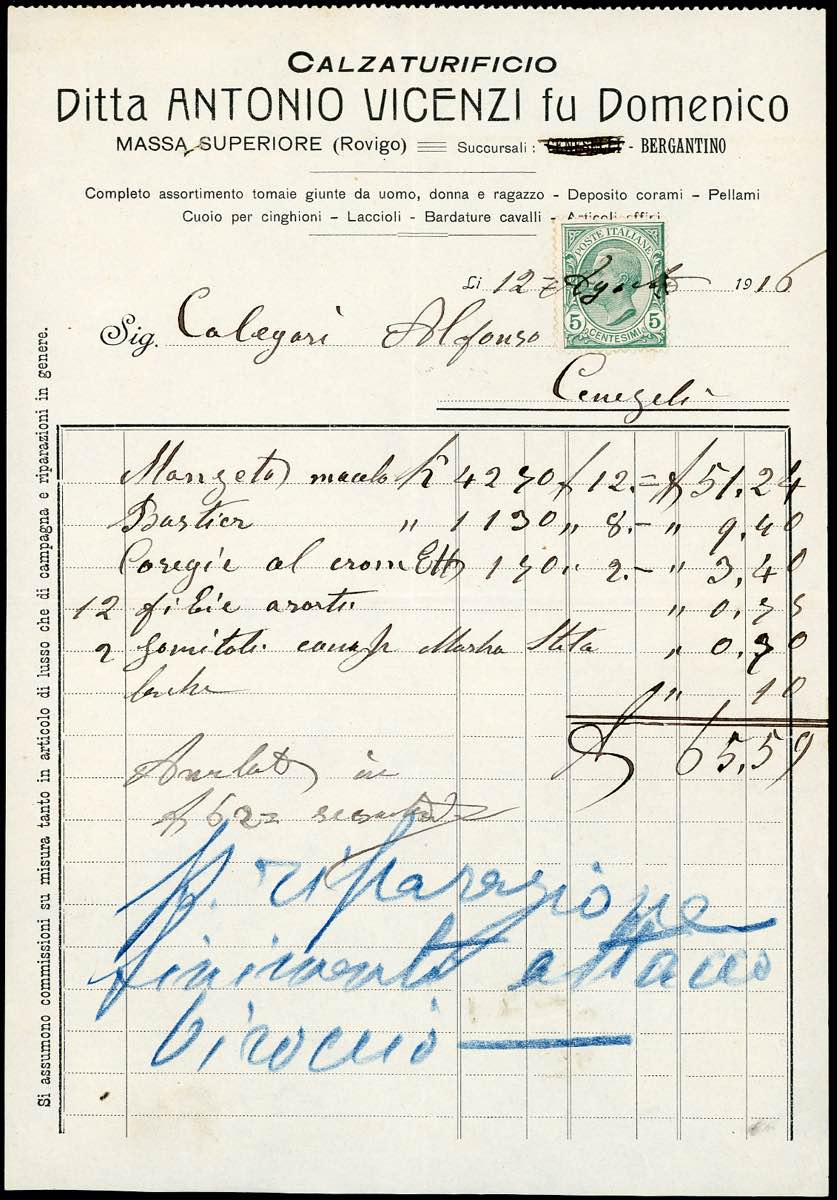 CALZATURIFICIO
Ditta ANTONIO VICENZI fu Domenico
MASSA SUPERIORE (Rovigo) Succursali: - BERGANTINO
Completo assortimento tomaie giunte da uomo, donna e ragazzo - Deposito corami - Pellami
Cuoio per cinghioni - Laccioli - Bardature cavalli - Articoli affini
POSTE ITALIANE
5 CENTESIMI 5
Li 12 Agosto 1916
Sig. Calegari Alfonso
Ceneseli
K 4270 £ 12.= £ 51,24
Bastier " 1130 " 8.- " 9,40
Coregie al crom Ett 170 " 2.- " 3,40
12 fibie asorti " 0,75
2 gomitoli canap Marha Stela " 0,70
" 10
£ 65,59
in
£ 62=
P. riparazione
finimento attacco
biroccio
Si assumono commissioni su misura tanto in articolo di lusso che di campagna e riparazioni in genere.